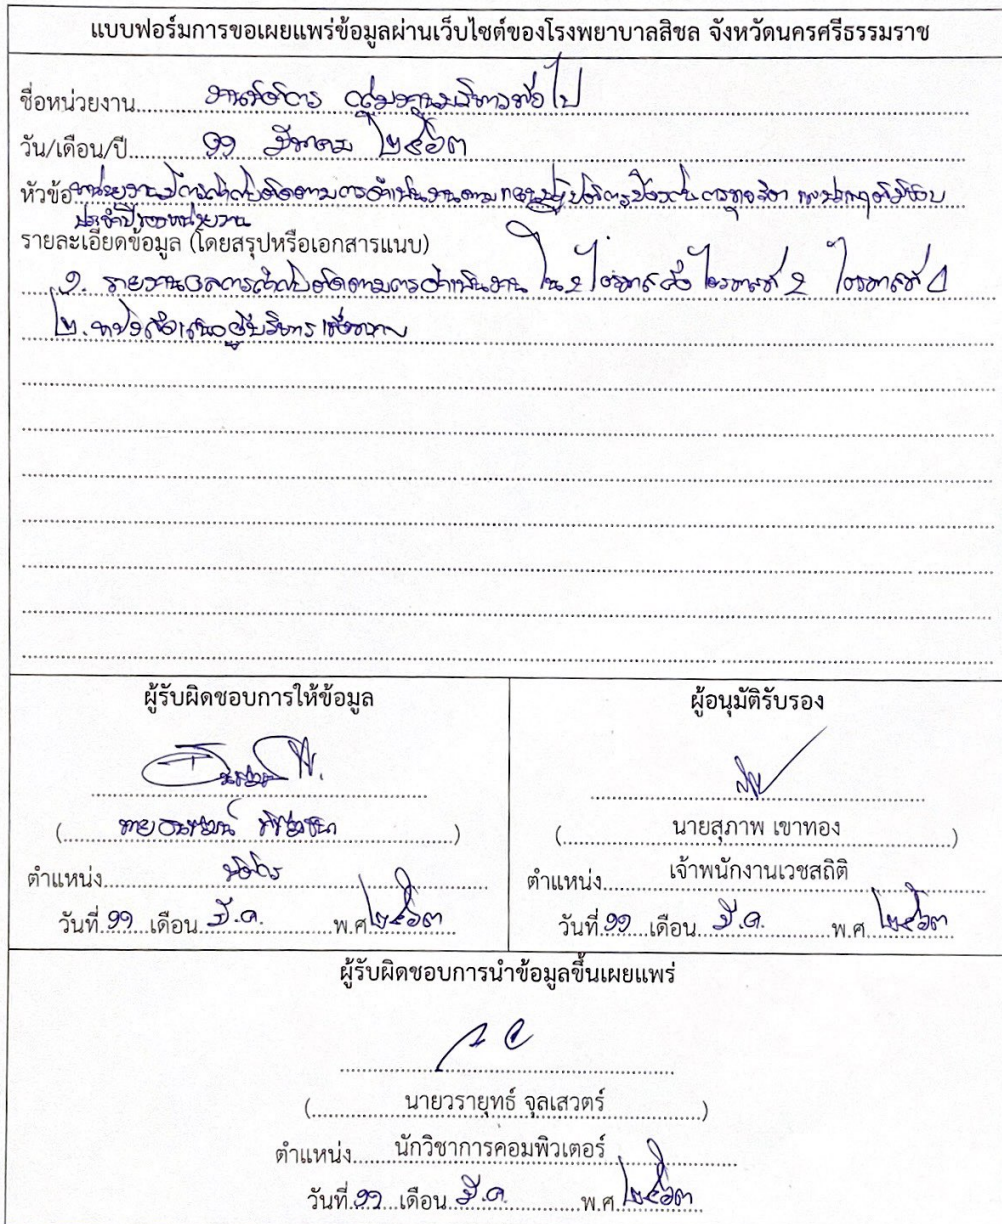 แบบฟอร์มการขอเผยแพร่ข้อมูลผ่านเว็บไซต์ของโรงพยาบาลสิชล จังหวัดนครศรีธรรมราช
ชื่อหน่วยงาน งานนิติการ กลุ่มงานบริหารทั่วไป
วัน/เดือน/ปี ๑๑ มีนาคม ๒๕๖๓
หัวข้อ หน่วยงานมีการกำกับติดตามการดำเนินงานตามแผนปฏิบัติการป้องกันการทุจริต และประพฤติมิชอบ
ประจำปีของหน่วยงาน
รายละเอียดข้อมูล (โดยสรุปหรือเอกสารแนบ)
๑. รายงานผลการกำกับติดตามการดำเนินงาน ใน 2 ไตรมาส คือ ไตรมาสที่ 2 ไตรมาสที่ 4
๒. หนังสือเสนอผู้บริหารเพื่อทราบ
ผู้รับผิดชอบการให้ข้อมูล
( นาย )
ตำแหน่ง นิติกร
วันที่ ๑๑ เดือน มี.ค. พ.ศ ๒๕๖๓
ผู้อนุมัติรับรอง
( นายสุภาพ เขาทอง )
ตำแหน่ง เจ้าพนักงานเวชสถิติ
วันที่ ๑๑ เดือน มี.ค. พ.ศ ๒๕๖๓
ผู้รับผิดชอบการนำข้อมูลขึ้นเผยแพร่
( นายวรายุทธ์ จุลเสวตร์ )
ตำแหน่ง นักวิชาการคอมพิวเตอร์
วันที่ ๑๑ เดือน มี.ค. พ.ศ ๒๕๖๓